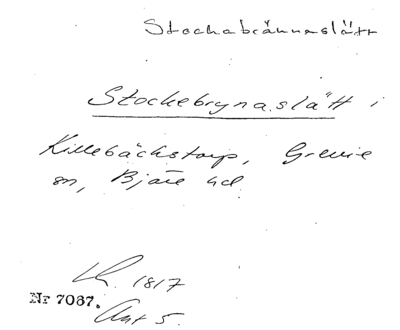 Stockabrännaslätt
Stockebrynaslätt i
Killebäckstorp, Grevie
sn, Bjäre hd
Lh. 1817
Nr 7087.
Akt 5.